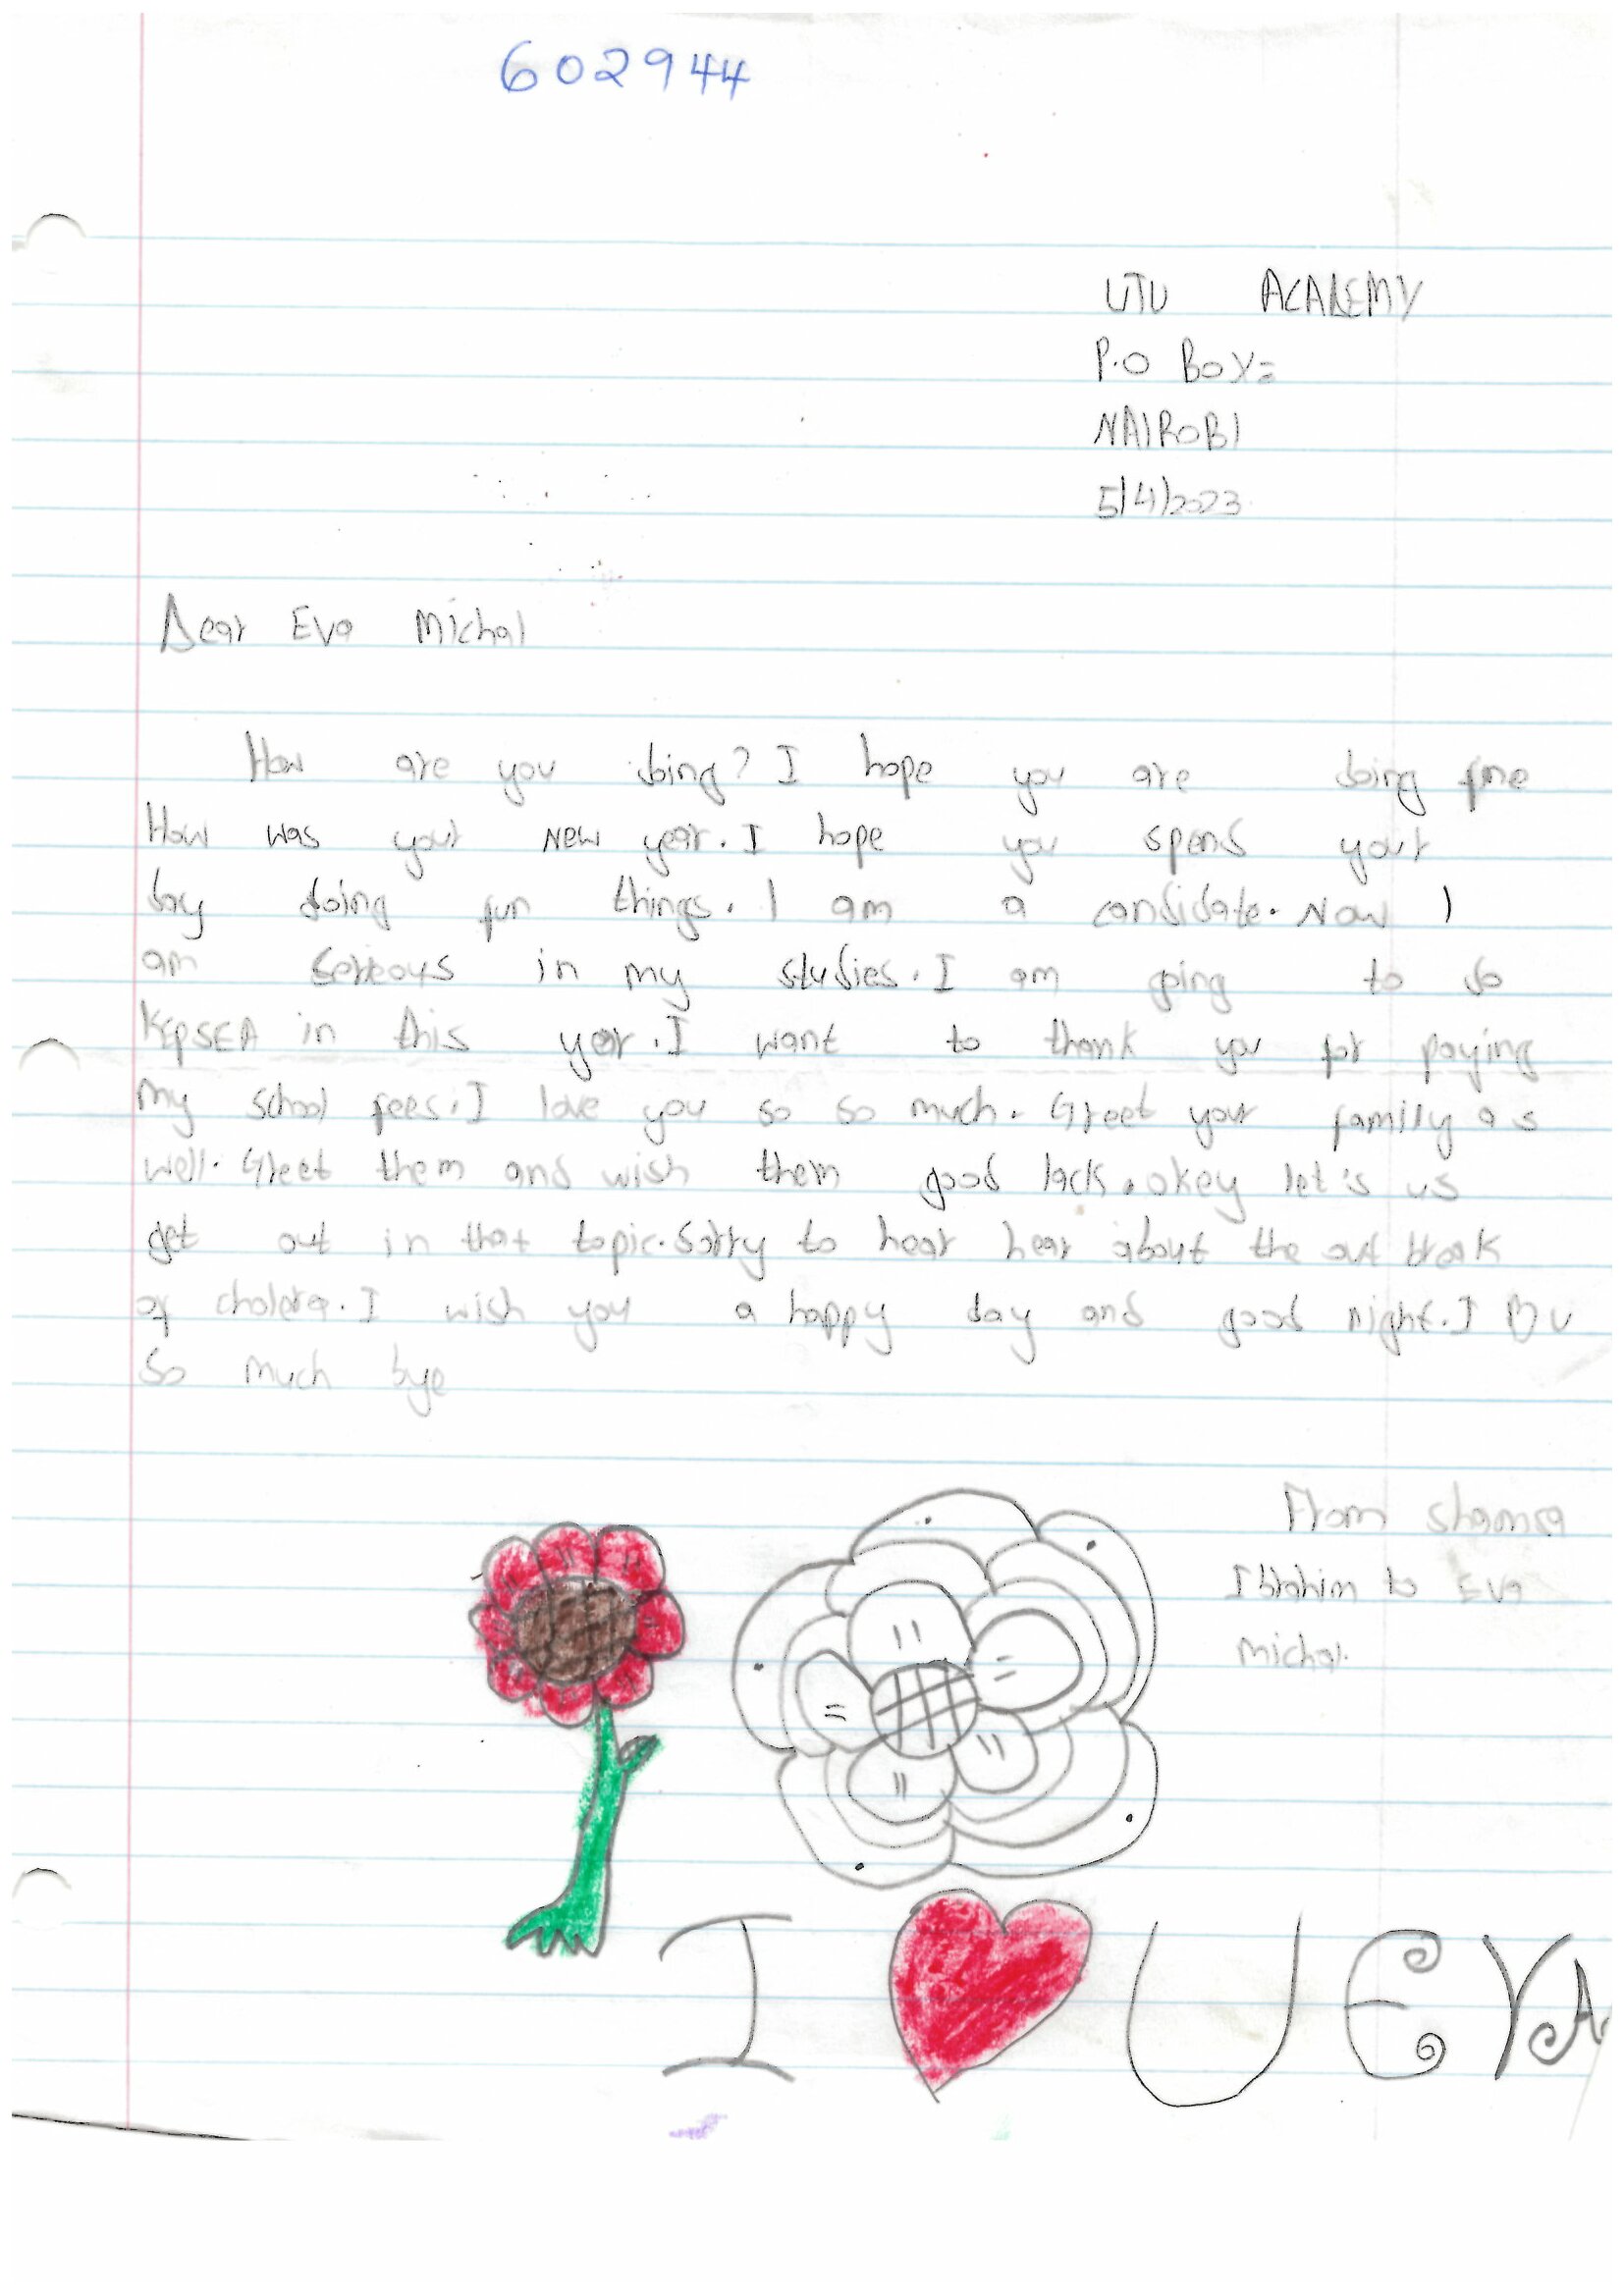 602944
UTU ACADEMY
P.O BOX=
NAIROBI
5/4/2023
Dear Eva Michal
How are you doing? I hope you are doing fine
How was your New year. I hope you spend your
day doing fun things. I am a candidate. Now I
am serious in my studies. I am going to do
KEPSEA in this year. I want to thank you for paying
my school fees. I love you so so much. Greet your family as
well. Greet them and wish them good lack. okey let's us
get out in that topic. Sorry to hear hear about the out break
of cholera. I wish you a happy day and good night. I U
So much bye
From shamsa
Ibrahim to Eva
Michal.
I ❤ U EVA